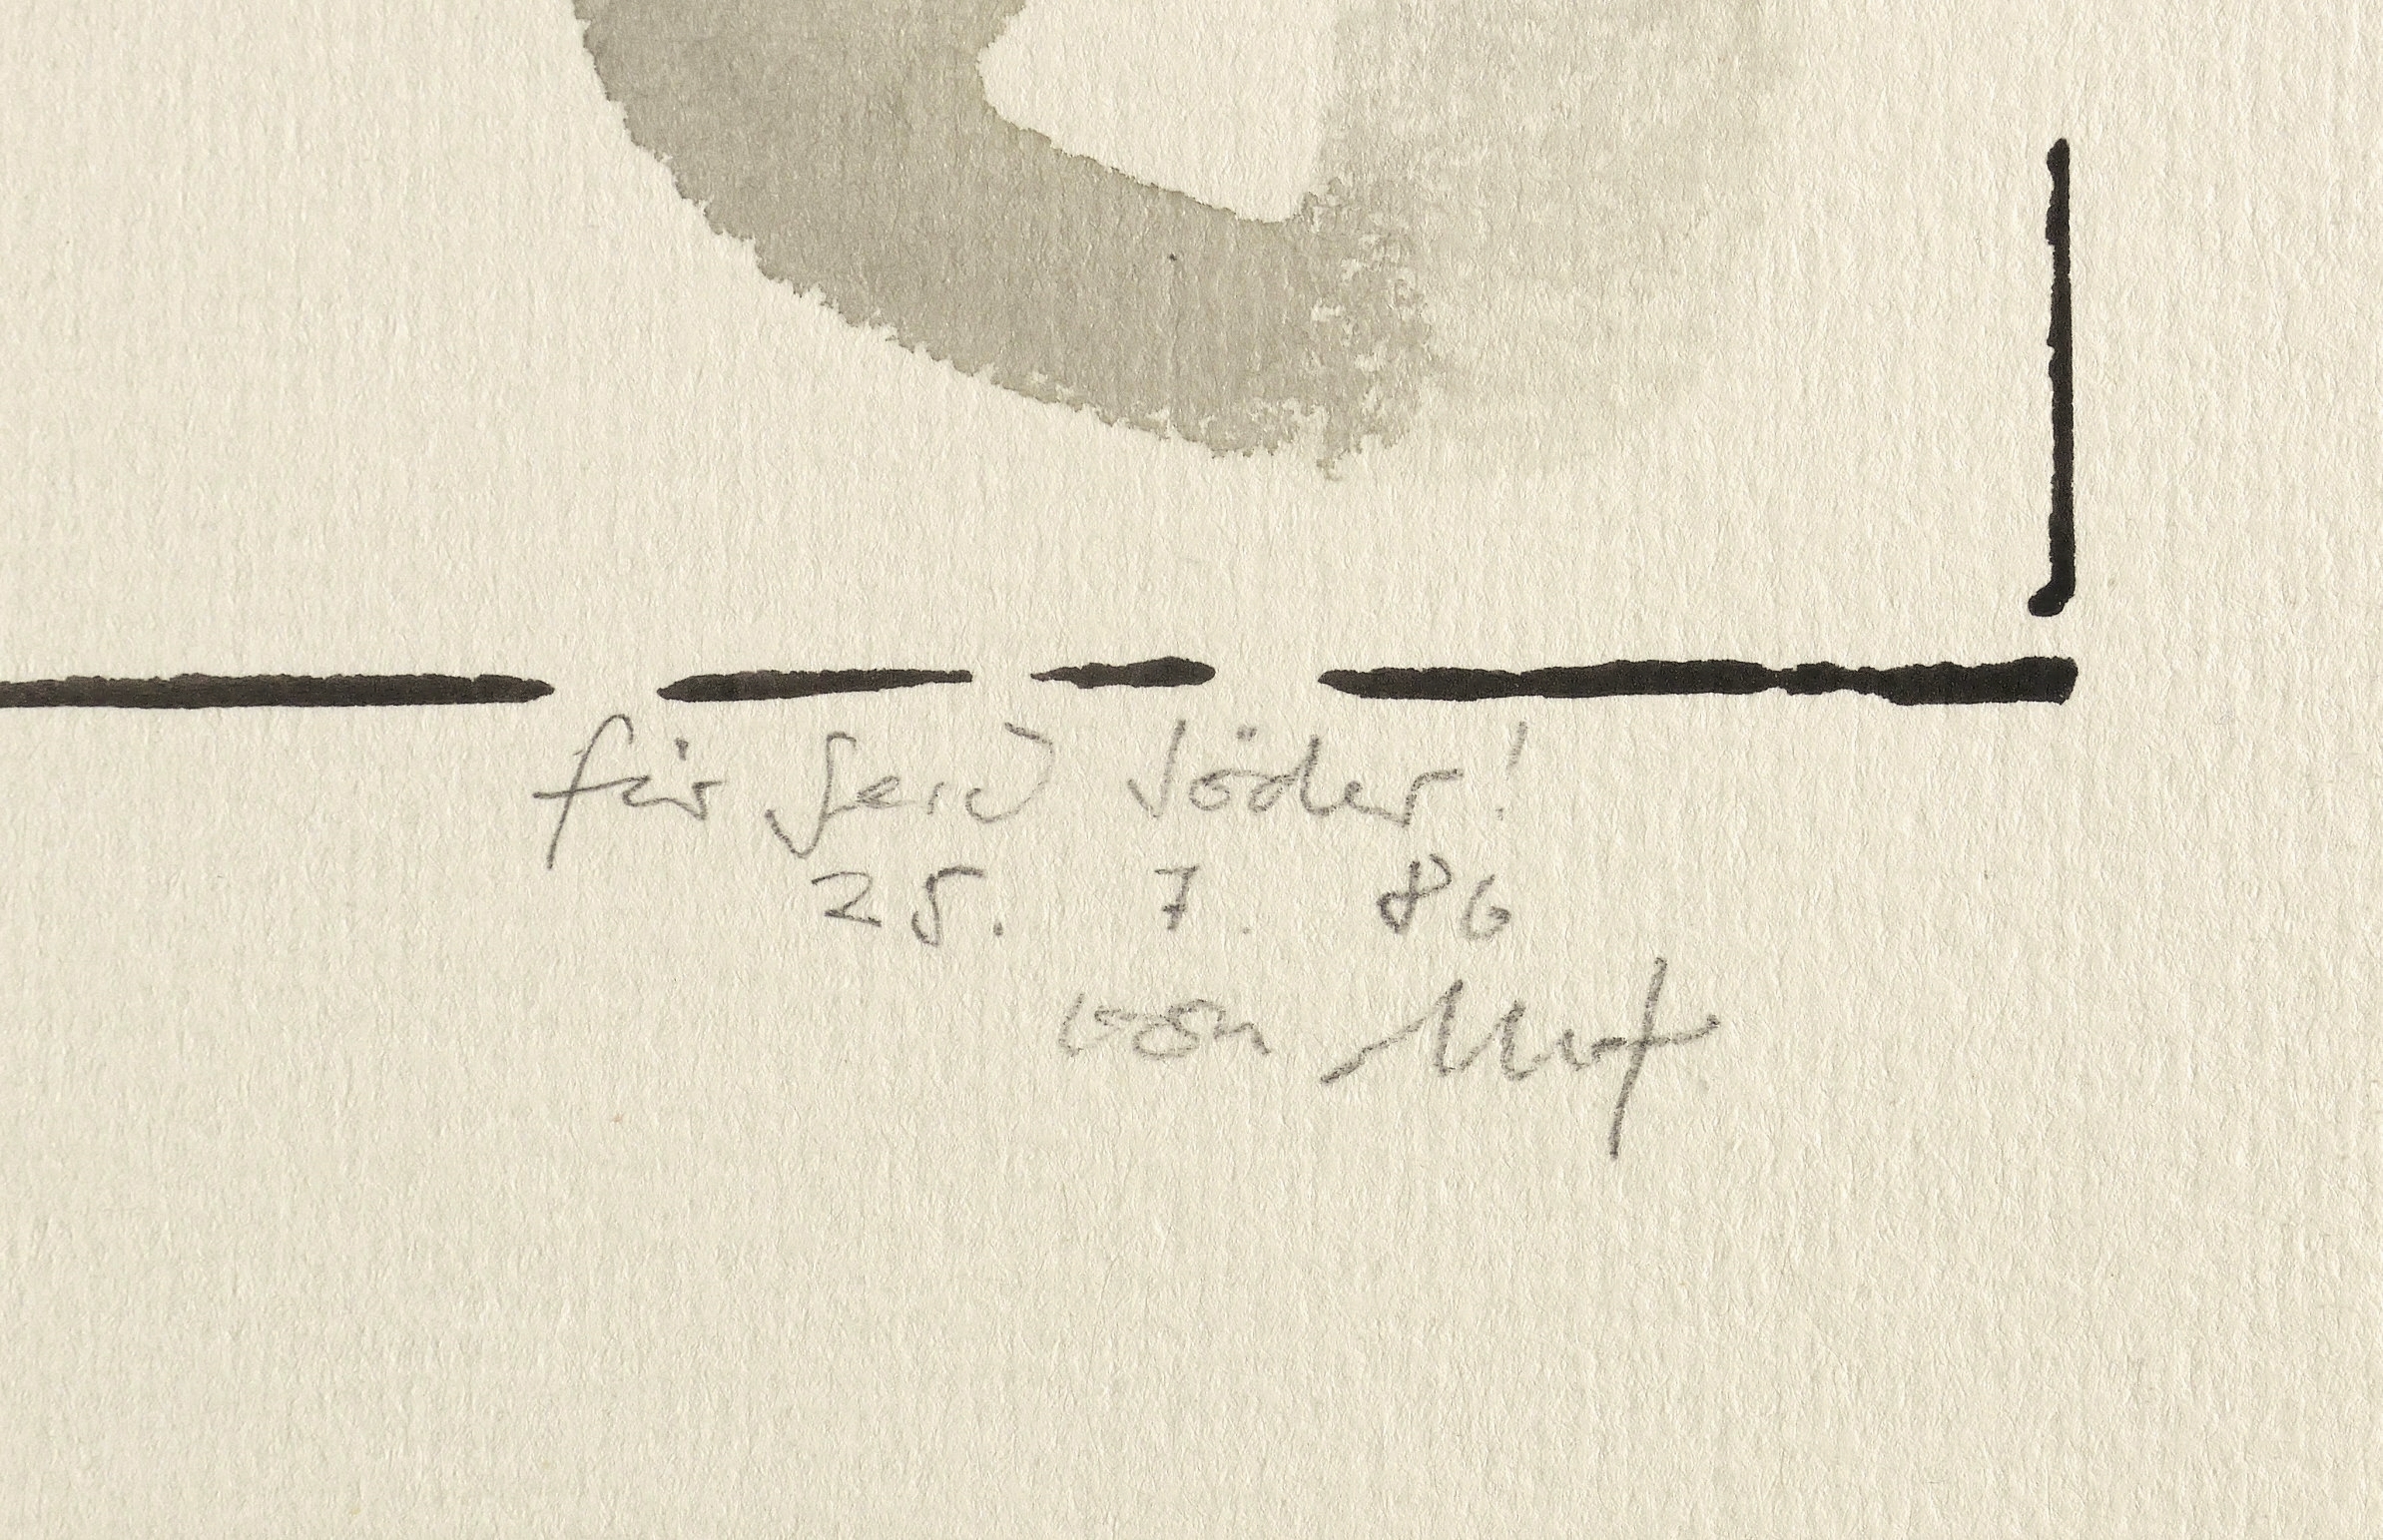 für Gerd Söder!
25. 7. 86
von